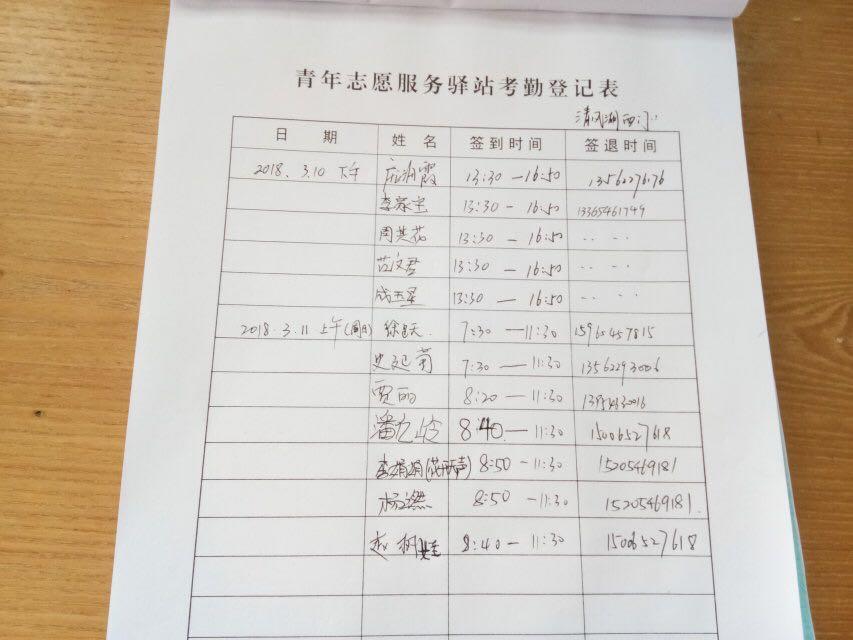 青年志愿服务驿站考勤登记表
清风湖西门
日 期 姓 名 签到时间 签退时间
2018. 3.10 下午 13:30 — 16:50
李家宝 13:30 - 16:50 13365461749
周英花 13:30 - 16:50 .. - ..
范文君 13:30 - 16:50
成玉星 13:30 - 16:50
2018. 3. 11 上午(周日) 7:30 — 11:30 15960457815
7:30 — 11:30 13562293006
贾丽 8:20 — 11:30
潘 8:40 — 11:30 15006527618
李娟娟 8:50 - 11:30 15205469181
杨 8:50 - 11:30 15205469181.
赵 8:40 - 11:30 15006527618